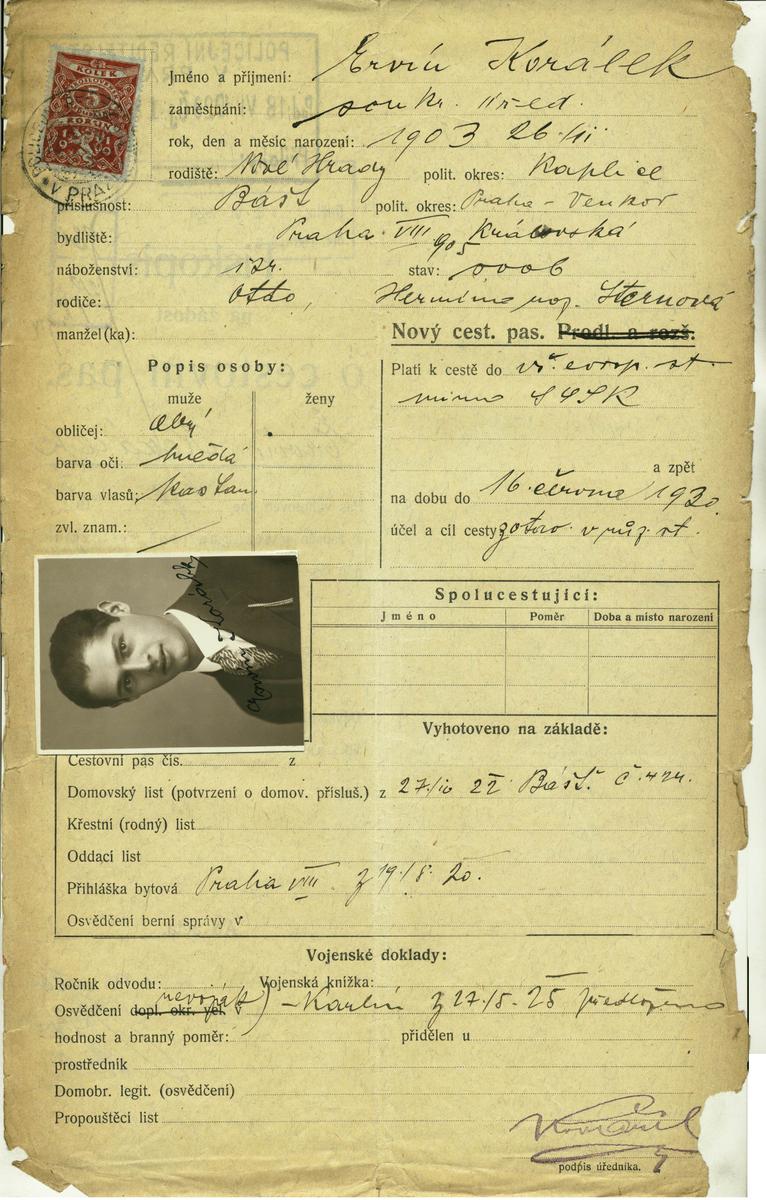 KOLEK
5
KORUN
V PRAZE
Jméno a příjmení: Ervín Korálek
zaměstnání: soukr. úřed.
rok, den a měsíc narození: 1903 26/III
rodiště: Nové Hrady polit. okres: Kaplice
příslušnost: Bášť polit. okres: Praha - venkov
bydliště: Praha VIII Královská
905
náboženství: izr. stav: svob
rodiče: Otto, Hermina roz. Sternová
manžel(ka): Nový cest. pas. Prodl. a rozš.:
Popis osoby:
muže ženy
obličej: obyč
barva očí: hnědá
barva vlasů: kaštan
zvl. znam.:
Platí k cestě do vš. evrop. st.
mimo SSSR
a zpět
na dobu do 16. června 1930
účel a cíl cesty: zotav. v růz. st.
Ervín Korálek
Spolucestující:
Jméno Poměr Doba a místo narození
Vyhotoveno na základě:
Cestovní pas čís. z
Domovský list (potvrzení o domov. přísluš.) z 27/10 22 Bášť. č. 424.
Křestní (rodný) list
Oddací list
Přihláška bytová Praha VIII z 19/8. 20.
Osvědčení berní správy v
Vojenské doklady:
Ročník odvodu: Vojenská knížka:
nevoják
Osvědčení dopl. okr. vel. v) - Karlín z 27/5. 25 předloženo
hodnost a branný poměr: přidělen u
prostředník
Domobr. legit. (osvědčení)
Propouštěcí list
podpis úředníka.